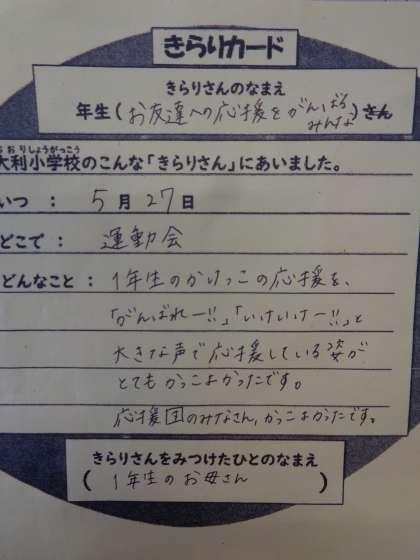 きらりカード
きらりさんのなまえ
年生(お友達への応援をがんばる
みんな)さん
おおりしょうがっこう
大利小学校のこんな「きらりさん」にあいました。
いつ : 5月27日
どこで : 運動会
どんなこと : 1年生のかけっこの応援を、
「がんばれー!!」「いけいけー!!」と
大きな声で応援している姿が
とてもかっこよかったです。
応援団のみなさん、かっこよかったです。
きらりさんをみつけたひとのなまえ
( 1年生のお母さん )